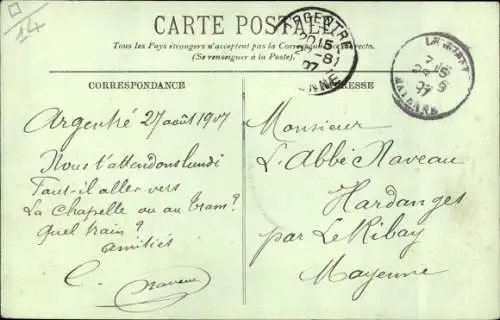 14
CARTE POSTALE
Tous les Pays étrangers n'acceptent pas la Correspondance au recto.
(Se renseigner à la Poste).
CORRESPONDANCE
ADRESSE
ARGENTRÉ
15
27-8
07
MAYENNE
15
07
MAYENNE
Argentré 27 août 1907
Nous t'attendons lundi
Faut-il aller vers
La Chapelle ou au Tram ?
Quel train ?
amitiés
C. Naveau
Monsieur
L'Abbé Naveau
Hardanges
par Le Ribay
Mayenne